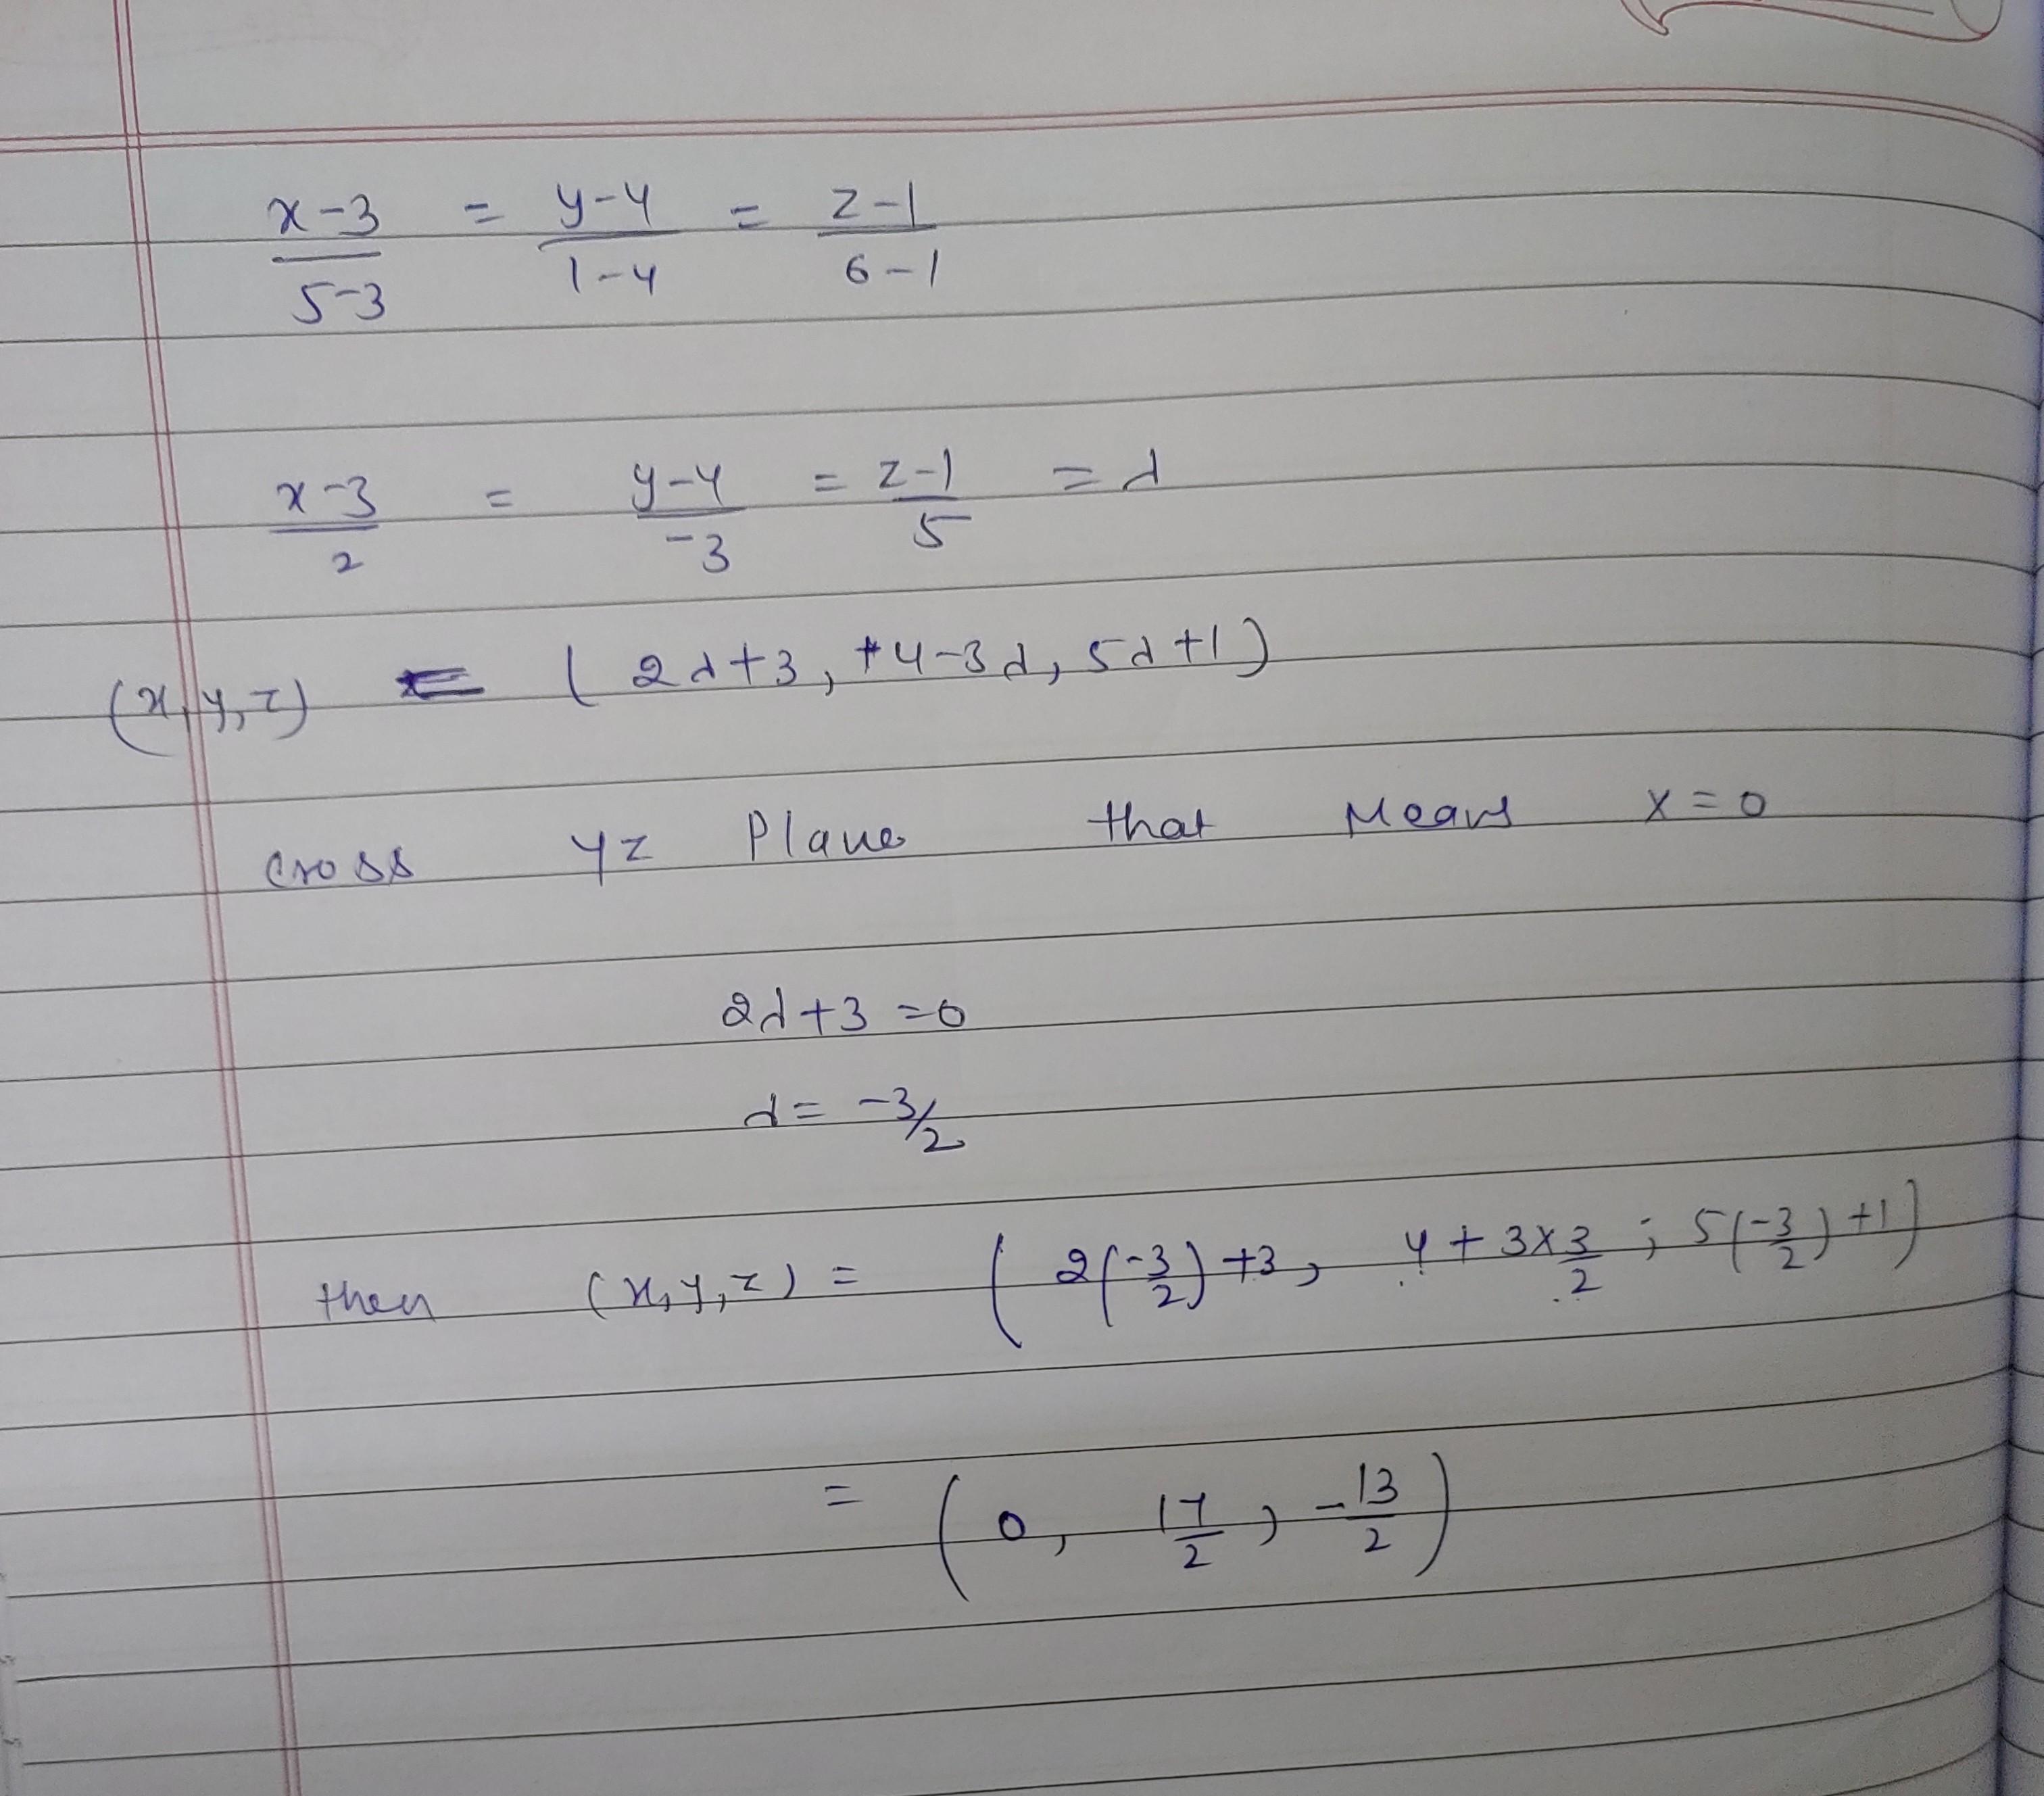 x-3/5-3 = y-4/1-4 = z-1/6-1
x-3/2 = y-4/-3 = z-1/5 = λ
(x,y,z) = (2λ+3, +4-3λ, 5λ+1)
cross yz Plane that Means x=0
2λ+3=0
λ= -3/2
then (x,y,z) = (2(-3/2)+3, 4+3×3/2, 5(-3/2)+1)
= (0, 17/2, -13/2)